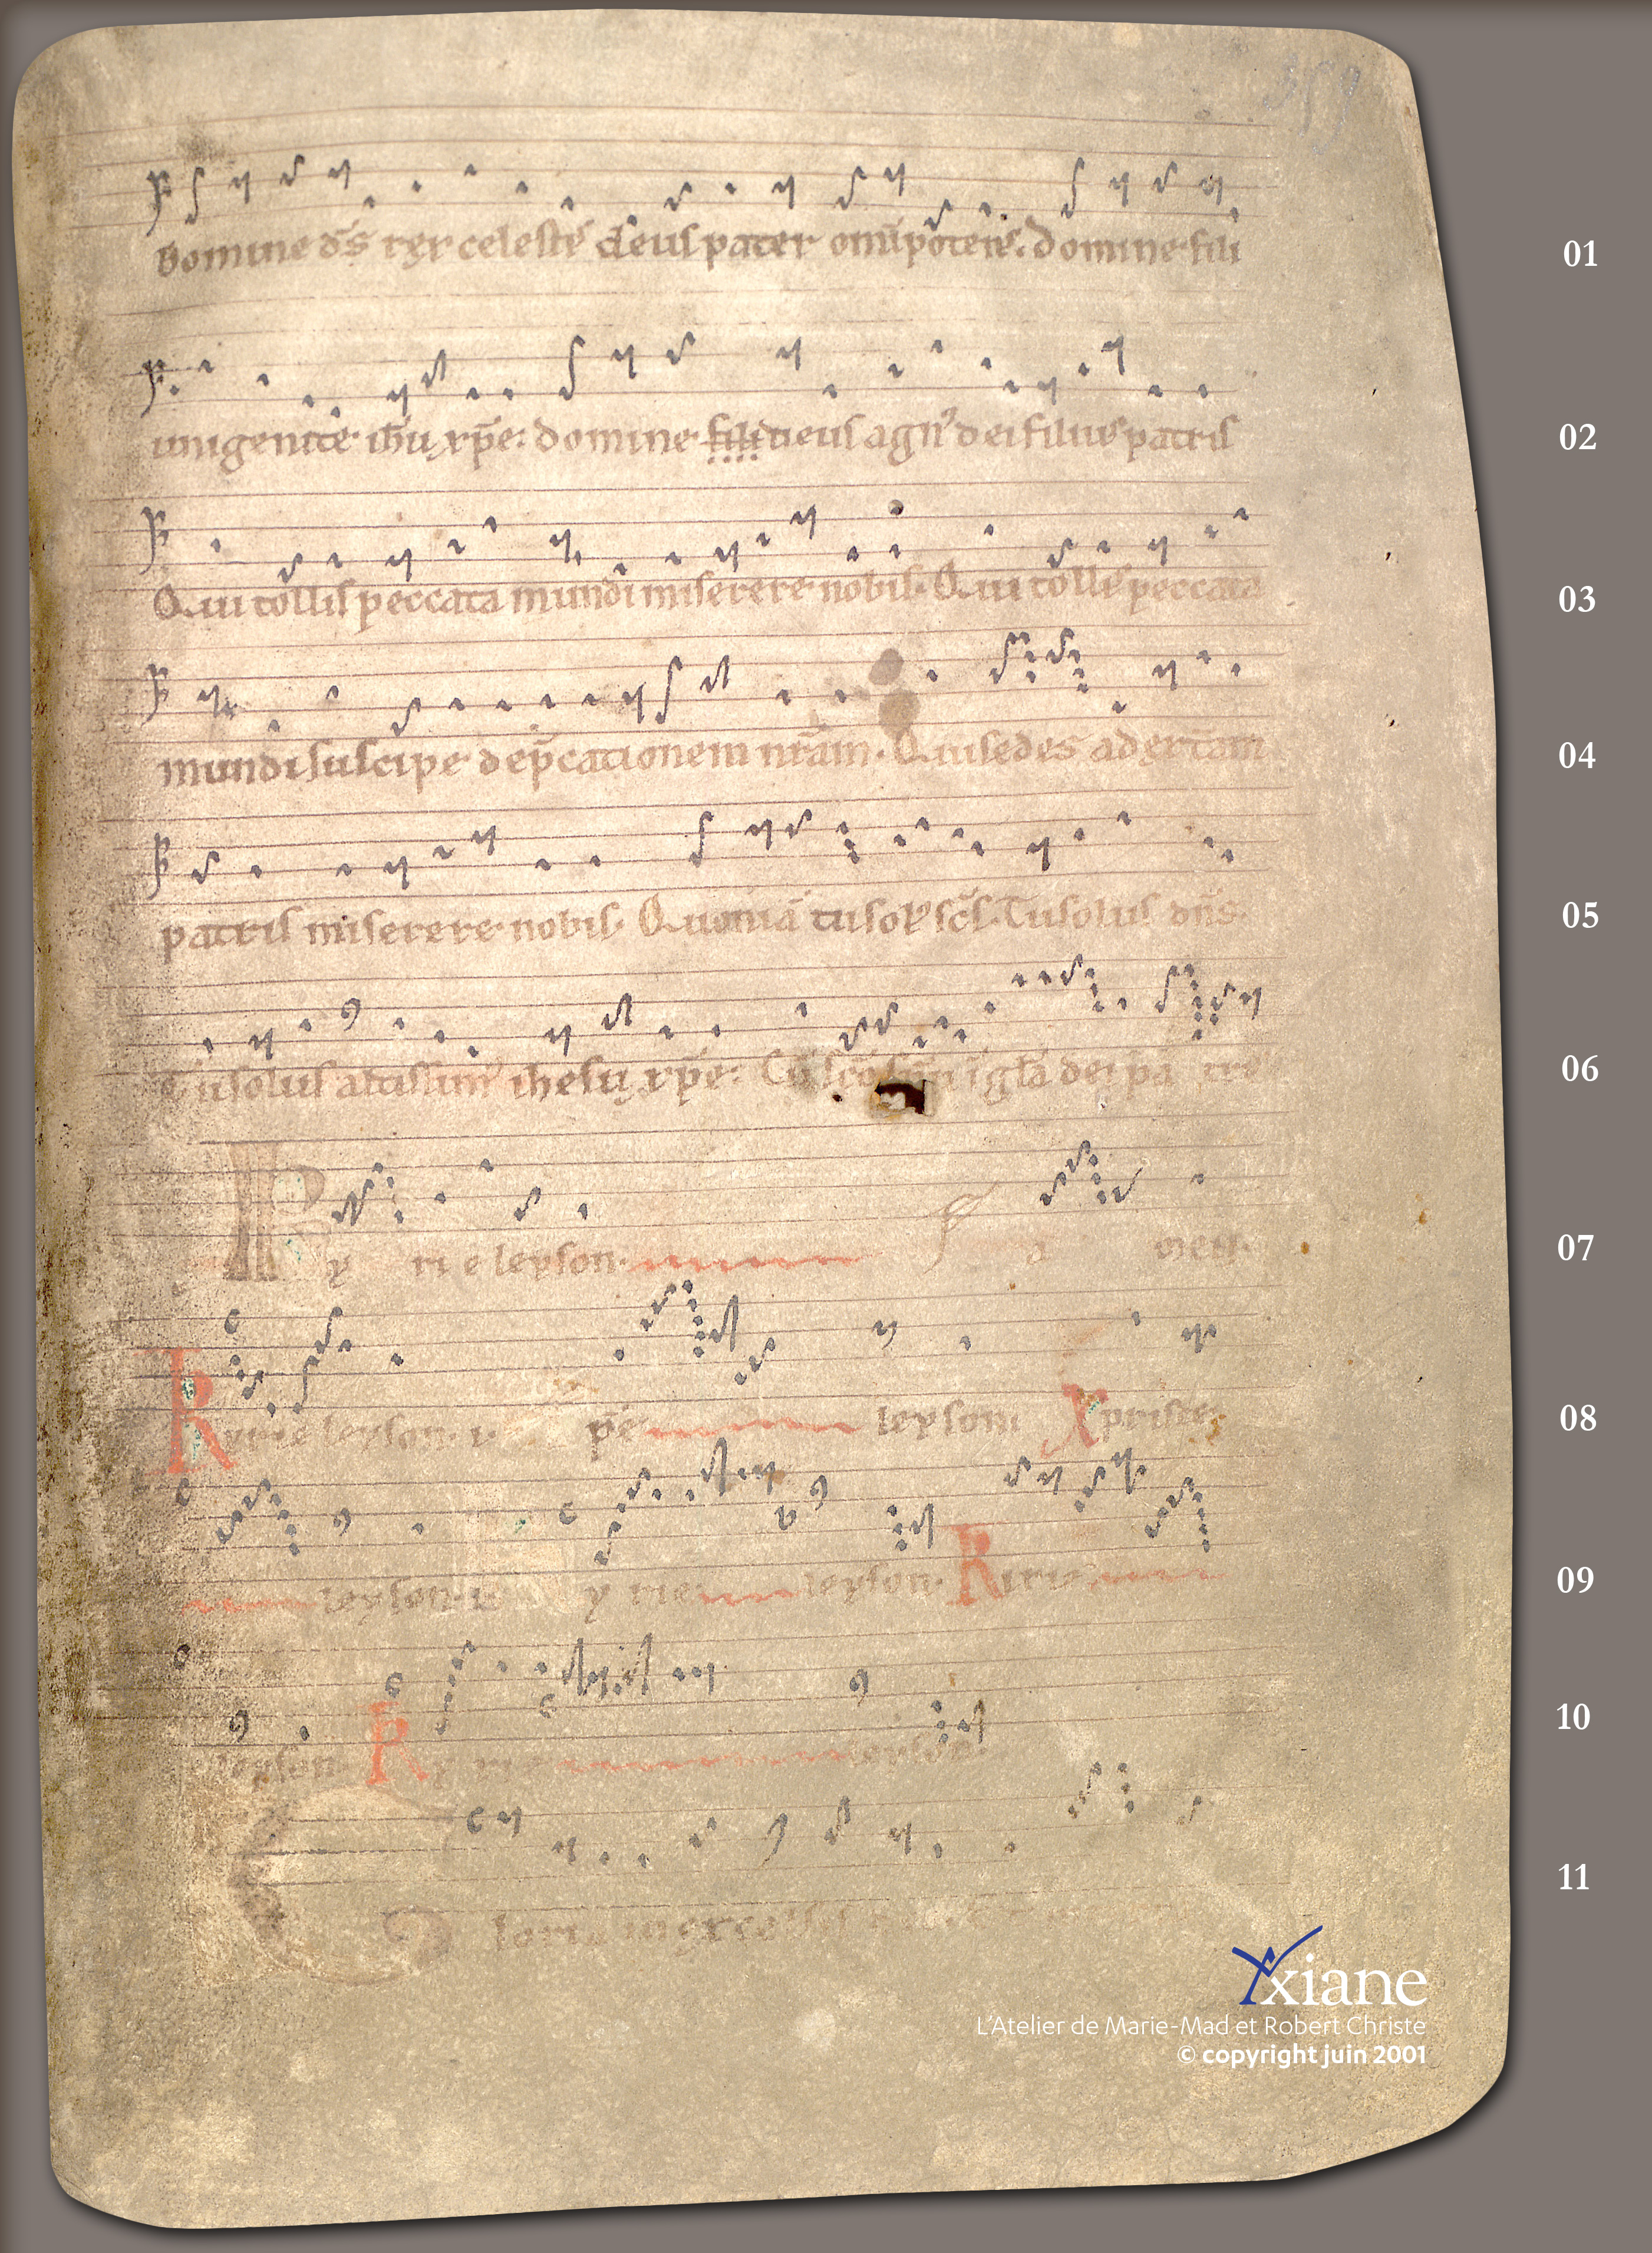 359
Domine dn̄s rex celeste deus pater omīpotens. Domine fili 01
unigenite ih̄u xp̄e: domine fili deus agn᷒ dei filius patris 02
Qui tollis peccata mundi miserere nobis. Qui tollis peccata 03
mundi suscipe dep̄cationem nr̄am. Qui sedes ad dex̄tam 04
patris miserere nobis. Quoniā tu sol᷒ sc̄s. Tu solus dn̄s. 05
Tu solus altissim᷒ ihesu xp̄e: Cū sc̄o īgl̄a dei pa tre 06
Ky ri e leyson. a men. 07
Kyrie leyson pe leyson Xpriste 08
leyson. y rie leyson. Kirie 09
leyson. Ky rie leyson. 10
Gloria in excelsis 11
Yxiane
L'Atelier de Marie-Mad et Robert Christe
© copyright juin 2001